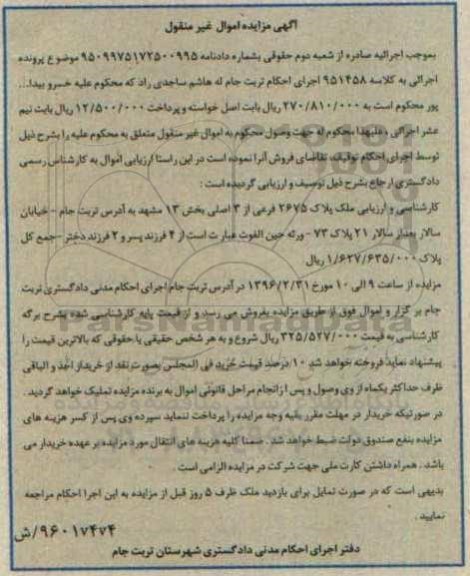 آگهی مزایده اموال غیر منقول
بموجب اجرائیه صادره از شعبه دوم حقوقی بشماره دادنامه ۹۵۰۹۹۷۵۱۷۲۵۰۰۹۹۵ موضوع پرونده
اجرائی به کلاسه ۹۵۱۴۵۸ اجرای احکام تربت جام له هاشم ساجدی راد که محکوم علیه خسرو بیدا...
پور محکوم است به ۲۷۰/۸۱۰/۰۰۰ ریال بابت اصل خواسته و پرداخت ۱۲/۵۰۰/۰۰۰ ریال بابت نیم
عشر اجرائی، علیهذا محکوم له جهت وصول محکوم به اموال غیر منقول متعلق به محکوم علیه را بشرح ذیل
توسط اجرای احکام توقیف، تقاضای فروش آنرا نموده است در این راستا ارزیابی اموال به کارشناس رسمی
دادگستری ارجاع بشرح ذیل توصیف و ارزیابی گردیده است:
کارشناسی و ارزیابی ملک پلاک ۲۶۷۵ فرعی از ۳ اصلی بخش ۱۳ مشهد به آدرس تربت جام - خیابان
سالار بهناز سالار ۲۱ پلاک ۷۳ - ورثه حین الفوت عبارت است از ۴ فرزند پسر و ۲ فرزند دختر - جمع کل
پلاک ۱/۶۲۷/۶۳۵/۰۰۰ ریال
مزایده از ساعت ۹ الی ۱۰ مورخ ۱۳۹۶/۲/۳۱ در آدرس تربت جام اجرای احکام مدنی دادگستری تربت
جام بر گزار و اموال فوق از طریق مزایده بفروش می رسد و از قیمت پایه کارشناسی شده بشرح برگه
کارشناسی به قیمت ۳۲۵/۵۲۷/۰۰۰ ریال شروع و به هر شخص حقیقی یا حقوقی که بالاترین قیمت را
پیشنهاد نماید فروخته خواهد شد ۱۰ درصد قیمت خرید فی المجلس بصورت نقد از خریدار اخذ و الباقی
ظرف حداکثر یکماه از وی وصول و پس از انجام مراحل قانونی اموال به برنده مزایده تملیک خواهد گردید.
در صورتیکه خریدار در مهلت مقرر بقیه وجه مزایده را پرداخت ننماید سپرده وی پس از کسر هزینه های
مزایده بنفع صندوق دولت ضبط خواهد شد. ضمنا کلیه هزینه های انتقال مورد مزایده بر عهده خریدار می
باشد. همراه داشتن کارت ملی جهت شرکت در مزایده الزامی است.
بدیهی است که در صورت تمایل برای بازدید ملک ظرف ۵ روز قبل از مزایده به این اجرا احکام مراجعه
نمایید.
۹۶۰۱۷۴۷۴/ش
دفتر اجرای احکام مدنی دادگستری شهرستان تربت جام
ParsNamadData